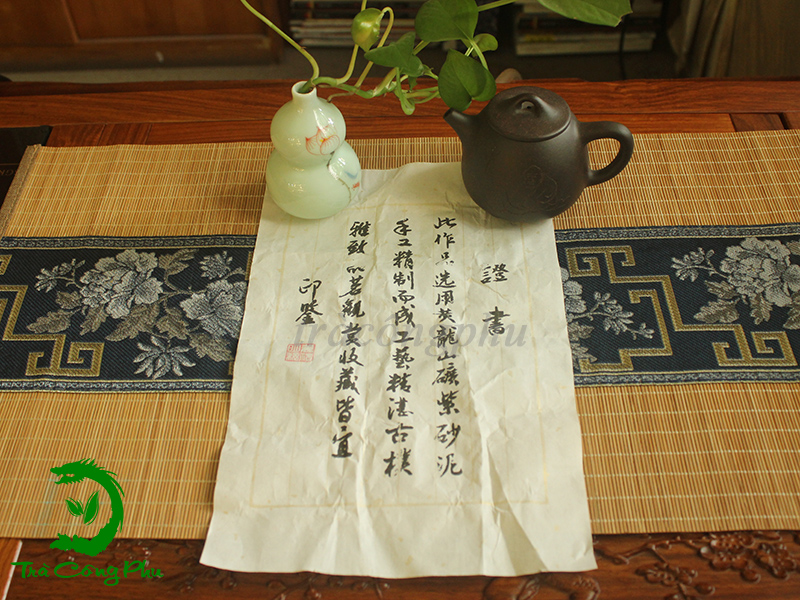 證書
此作品选用黄龍山礦紫砂泥
手工精制而成工藝精湛古樸
雅致 茗觀赏收藏皆宜
印鑒
tracôngphu
Trà Công Phu